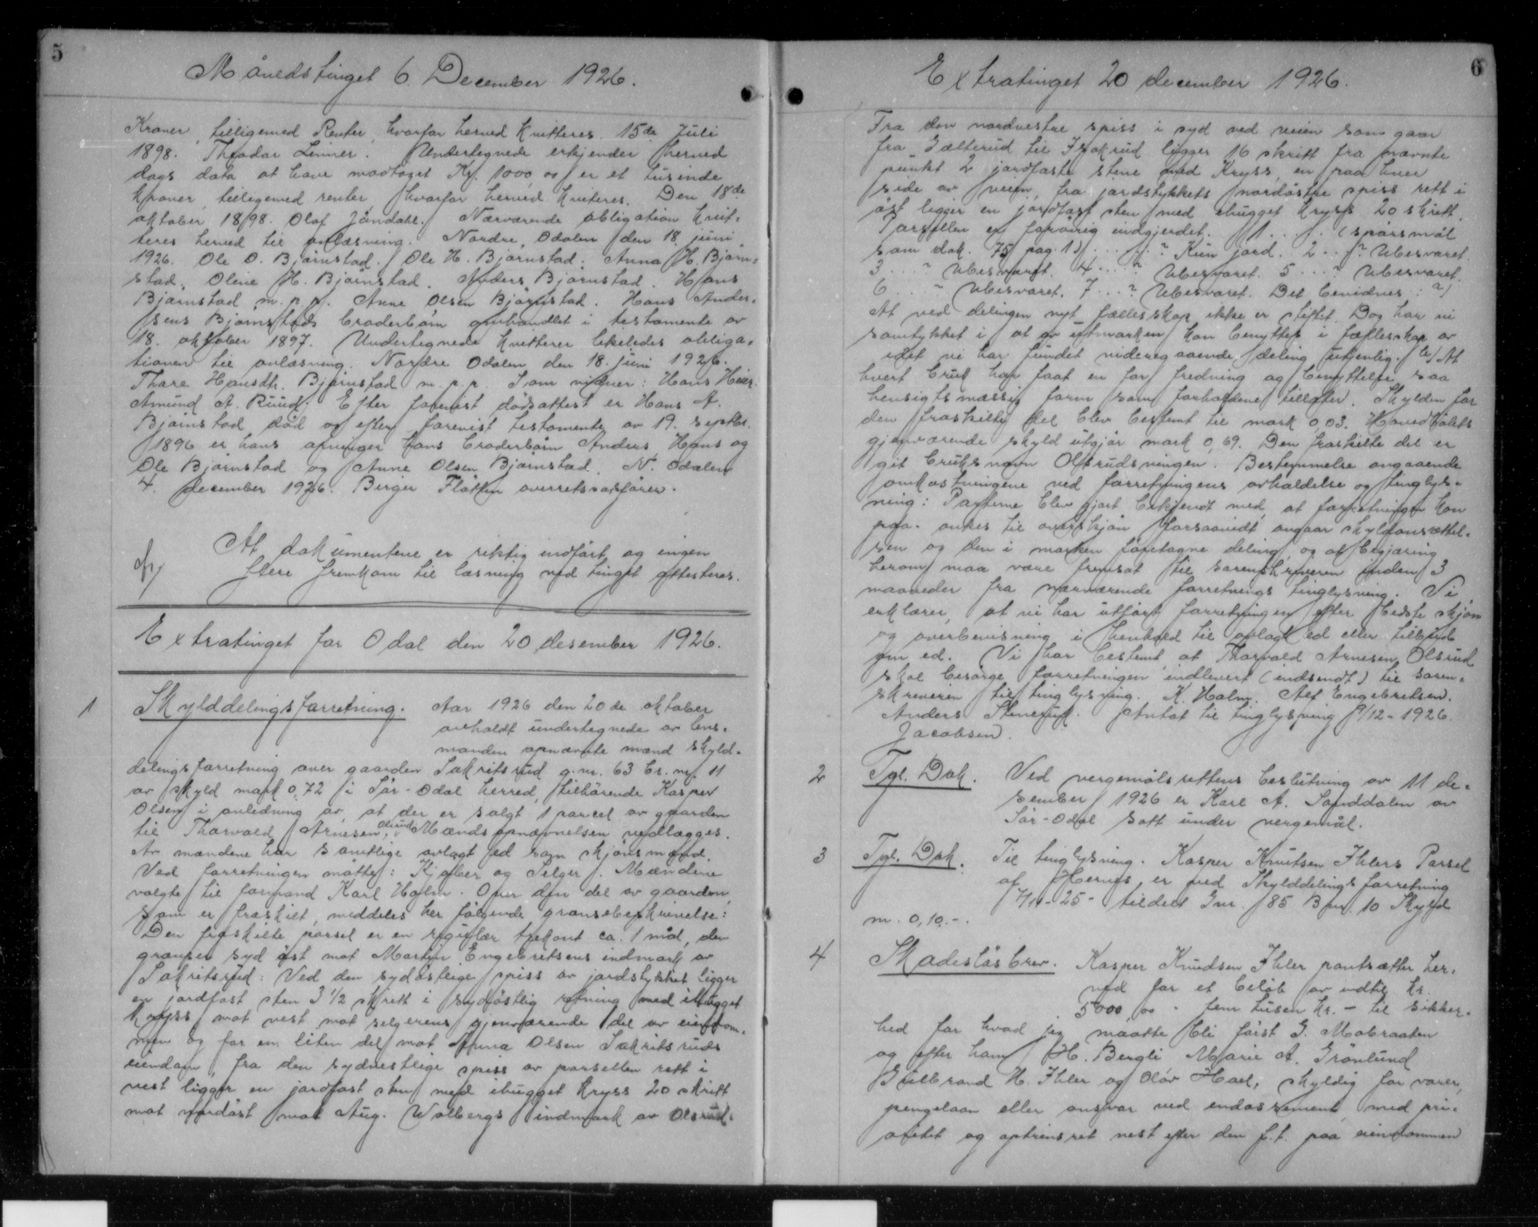 5
Månedstinget 6 December 1926.
Kroner tilligemed Renter, hvorfor herved kvitteres. 15de Juli
1898. Theodor Linner. Undertegnede erkjender herved
dags dato at have modtaget Kr. 1000,00 er et tusinde
kroner, tilligemed renter hvorfor herved kviteres. Den 18de
oktober 1898. Olof Jöndahl. Nærværende obligation kvit-
teres herved til avlæsning. Nordre Odalen den 18 juni
1926. Ole O. Bjørnstad. Ole H. Bjørnstad. Anna H. Bjørn-
stad. Oline H. Bjørnstad. Anders Bjørnstad. Hans
Bjørnstad m.p.p. Anne Olsen Bjørnstad. Hans Ander-
sens Bjørnstads broderbørn omhandlet i testamente av
18. oktober 1897. Undertegnede kvitterer likeledes obliga-
tionen til avlæsning. Nordre Odalen den 18 juni 1926.
Thore Hansdtr. Bjørnstad m.p.p. Som vidner: Hans Heier.
Amund A. Ruud. Efter forevist dødsattest er Hans A.
Bjørnstad død og efter forevist testamente av 19. septbr.
1896 er hans arvinger hans broderbørn Anders, Hans og
Ole Bjørnstad og Anne Olsen Bjørnstad. N. Odalen
4. december 1926. Birger Flåtten overretssakfører.
At dokumentene er riktig indført og ingen
flere fremkom til læsning ved tinget attesteres.
Extratinget for Odal den 20 desember 1926.
1 Skylddelingsforretning. Aar 1926 den 20de oktober
avholdt undertegnede av lens-
manden opnævnte mænd skyld-
delingsforretning over gaarden Sakritsrud g.nr. 63 br. nr. 11
av skyld mark 0,72 i Sør-Odal herred, tilhørende Kasper
Olsen i anledning av, at der er solgt 1 parcel av gaarden
til Thorvald Arnesen Olsrud. Mændsopnævnelsen vedlægges.
Av mændene har samtlige avlagt ed som skjønsmænd.
Ved forretningen møtte: Kjøber og Selger. Mændene
valgte til formand Karl Holm. Over den del av gaarden,
som er fraskilt, meddeles her følgende grænsebeskrivelse:
Den fraskilte parsel er en regulær trekant ca. 1 mål, den
grænser syd øst mot Martin Engebritsens indmark av
Sakritsrud: Ved den sydøstlige spiss av jordstykket ligger
en jordfast sten 3 1/2 skritt i sydøstlig retning med ihugget
kryss mot vest mot selgerens gjenværende del av eiendom-
men og for en liten del mot Anna Olsen Sakritsruds
eiendom, fra den sydvestlige spiss av parsellen rett i
vest ligger en jordfast sten med ihugget kryss 20 skritt
mot nordøst mot Aug. Wolbergs indmark av Olsrud.
6
Extratinget 20 december 1926.
Fra den nordvestre spiss i syd ved veien som gaar
fra Gælterud til Frokrud ligger 16 skritt fra nævnte
punkt 2 jordfaste stene med Kryss, en paa hver
side av veien, fra jordstykkets nordøstre spiss rett i
øst ligger en jordfast sten med ihugget kryss 20 skritt.
Parsellen er forøvrig indgjerdet. 1 . . . (spørsmål
som dok. 75 pag. 1) . . . ? Kun jord. 2 . . ? Ubesvaret.
3 . . ? Ubesvaret. 4 . . ? Ubesvaret. 5 . . ? Ubesvaret.
6 . . ? Ubesvaret. 7 . . ? Ubesvaret. Det bevidnes: a)
At ved delingen nyt fælleskap ikke er stiftet. Dog har vi
samtykket i at utmarken kan benyttes i fælleskap av
idet vi har fundet videregaaende deling utjenlig. b) At
hvert bruk har faat en for fredning og benyttelse saa
hensigtsmæssig form som forholdene tillater. Skylden for
den fraskilte del blev bestemt til mark 0,03. Hovedbølets
gjenværende skyld utgjør mark 0,69. Den fraskilte del er
git bruksnavn Olsrudsvingen. Bestemmelse angaaende
omkostningene ved forretningens avholdelse og tinglys-
ning: Parterne blev gjort bekjendt med, at forretningen kan
paa-ankes til overskjøn forsaavidt angaar skyldansættel-
sen og den i marken foretagne deling, og at begjæring
herom maa være fremsat til sorenskriveren inden 3
maaneder fra nærværende forretnings tinglysning. Vi
erklærer, at vi har utført forretningen efter bedste skjøn
og overbevisning i henhold til avlagt ed eller tilbud
om ed. Vi har bestemt at Thorvald Arnesen Olsrud
skal besørge forretningen indlevert (indsendt) til soren-
skriveren til tinglysning. K. Holm. Alf Engebretsen.
Anders Stenerud. Antat til tinglysning 9/12-1926.
Jacobsen.
2 Tgl. Dok. Ved vergemålsrettens beslutning av 11 de-
sember 1926 er Karl A. Sanddalen av
Sør-Odal satt under vergemål.
3 Tgl. Dok. Til tinglysning. Kasper Knutsen Ihlers Parsel
af Hernes er ved Skylddelingsforretning
7/11-25- tildelt Gnr. 85 Bnr. 10 Skyld
m. 0,10.-.
4 Skadesløsbrev. Kasper Knudsen Ihler pantsætter her-
ved for et beløb av indtil kr.
5000,00 - fem tusen kr. - til sikker-
hed for hvad jeg maatte bli først G. Mobraaten
og efter ham H. Bergli Marie A. Grønlund
Gulbrand H. Ihler og Olav Hael, skyldig for varer,
pengelaan eller ansvar ved endossement med pri-
oritet og optrinsret nest efter den f.t. paa eiendommen